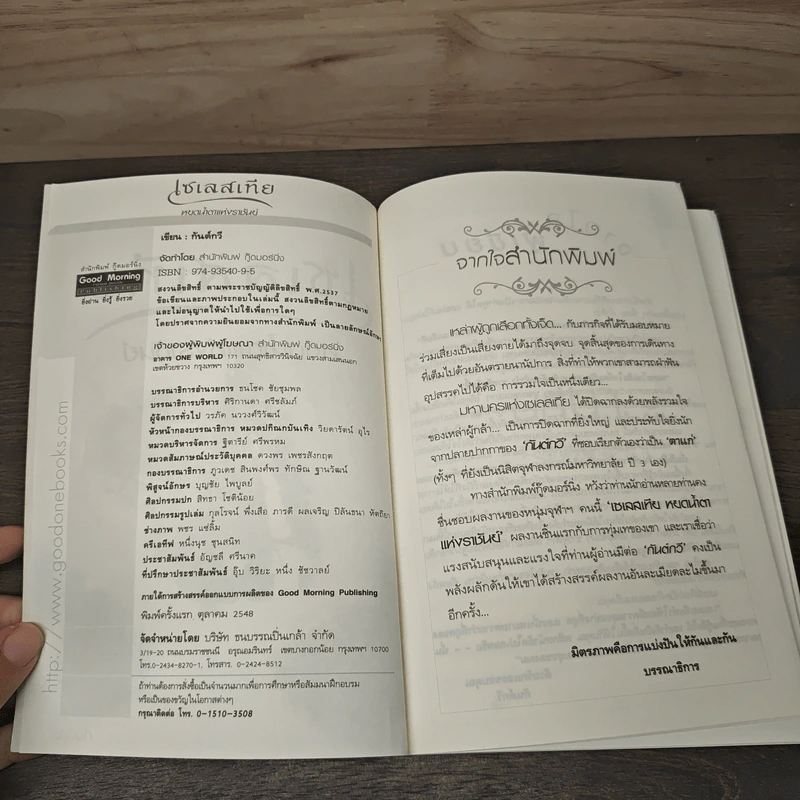 เซเลสเทีย
หยดน้ำตาแห่งราชันย์
เขียน : กันต์กวี
จัดทำโดย สำนักพิมพ์ กู๊ดมอร์นิ่ง
ISBN : 974-93540-9-5
สำนักพิมพ์ กู๊ดมอร์นิ่ง
Good Morning
Publishing
ยิ่งอ่าน ยิ่งรู้ ยิ่งรวย
สงวนลิขสิทธิ์ ตามพระราชบัญญัติลิขสิทธิ์ พ.ศ.2537
ข้อเขียนและภาพประกอบในเล่มนี้ สงวนลิขสิทธิ์ตามกฎหมาย
และไม่อนุญาตให้นำไปใช้เพื่อการใดๆ
โดยปราศจากความยินยอมจากทางสำนักพิมพ์ เป็นลายลักษณ์อักษร
เจ้าของผู้พิมพ์ผู้โฆษณา สำนักพิมพ์ กู๊ดมอร์นิ่ง
อาคาร ONE WORLD 171 ถนนสุทธิสารวินิจฉัย แขวงสามเสนนอก
เขตห้วยขวาง กรุงเทพฯ 10320
บรรณาธิการอำนวยการ ธนโชค ชัยชุมพล
บรรณาธิการบริหาร ศิริกานดา ศรีชลัมภ์
ผู้จัดการทั่วไป วรภัค นววงศ์วิวัฒน์
หัวหน้ากองบรรณาธิการ หมวดปกิณกบันเทิง วิยดารัตน์ อุไร
หมวดบริหารจัดการ ฐิตารีย์ ศรีพรหม
หมวดสัมภาษณ์ประวัติบุคคล ดวงพร เพชรสังกฤต
กองบรรณาธิการ ภูวเดช สินพงศ์พร ทักษิณ ฐานวัฒน์
พิสูจน์อักษร บุญชัย ไพบูลย์
ศิลปกรรมปก สิทธา โชตินอย
ศิลปกรรมรูปเล่ม กุลโรจน์ พึ่งเสือ ภารดี ผลเจริญ ปิลันธนา หัตถิยา
ช่างภาพ พชร แซ่ลิ้ม
ครีเอทีฟ หนึ่งนุช ชุนสนิท
ประชาสัมพันธ์ อัญชลี ศรีนาค
ที่ปรึกษาประชาสัมพันธ์ อุ๊บ วิริยะ หนึ่ง ชัชวาลย์
ภายใต้การสร้างสรรค์ออกแบบการผลิตของ Good Morning Publishing
พิมพ์ครั้งแรก ตุลาคม 2548
จัดจำหน่ายโดย บริษัท ธนบรรณปิ่นเกล้า จำกัด
3/19-20 ถนนบรมราชชนนี อรุณอมรินทร์ เขตบางกอกน้อย กรุงเทพฯ 10700
โทร.0-2434-8270-1, โทรสาร. 0-2424-8512
ถ้าท่านต้องการสั่งซื้อเป็นจำนวนมากเพื่อการศึกษาหรือสัมมนาฝึกอบรม
หรือเป็นของขวัญในโอกาสต่างๆ
กรุณาติดต่อ โทร. 0-1510-3508
http://www.goodonebooks.com
จากใจสำนักพิมพ์
เหล่าผู้ถูกเลือกทั้งเจ็ด... กับภารกิจที่ได้รับมอบหมาย
ร่วมเสี่ยงเป็นเสี่ยงตายได้มาถึงจุดจบ จุดสิ้นสุดของการเดินทาง
ที่เต็มไปด้วยอันตรายนานัปการ สิ่งที่ทำให้พวกเขาสามารถฝ่าฟัน
อุปสรรคไปได้คือ การรวมใจเป็นหนึ่งเดียว...
มหานครแห่งเซเลสเทีย ได้ปิดฉากลงด้วยพลังรวมใจ
ของเหล่าผู้กล้า... เป็นการปิดฉากที่ยิ่งใหญ่ และประทับใจยิ่งนัก
จากปลายปากกาของ 'กันต์กวี' ที่ชอบเรียกตัวเองว่าเป็น 'ตาแก่'
(ทั้งๆ ที่ยังเป็นนิสิตจุฬาลงกรณ์มหาวิทยาลัย ปี 3 เอง)
ทางสำนักพิมพ์กู๊ดมอร์นิ่ง หวังว่าท่านนักอ่านหลายท่านคง
ชื่นชอบผลงานของหนุ่มจุฬาฯ คนนี้ 'เซเลสเทีย หยดน้ำตา
แห่งราชันย์' ผลงานชิ้นแรกกับการทุ่มเทของเขา และเราเชื่อว่า
แรงสนับสนุนและแรงใจที่ท่านผู้อ่านมีต่อ 'กันต์กวี' คงเป็น
พลังผลักดันให้เขาได้สร้างสรรค์ผลงานอันละเมียดละไมขึ้นมา
อีกครั้ง...
มิตรภาพคือการแบ่งปันให้กันและกัน
บรรณาธิการ